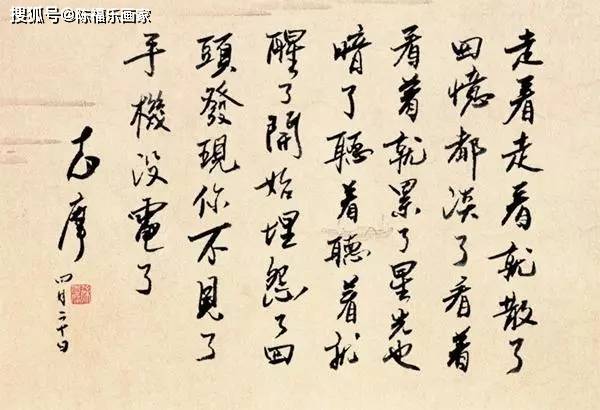 搜狐号@陈福乐画家
走着走着就散了
回憶都淡了看着
看着就累了星光也
暗了聽着聽着就
醒了開始埋怨了回
頭發現你不見了
手機没電了
志摩
四月二十日